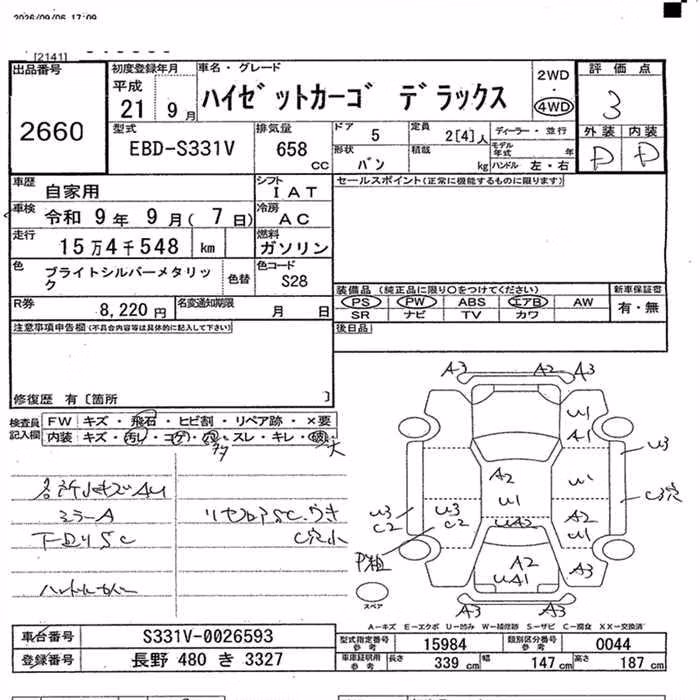 2026/09/06 17:09
[2141]
出品番号
2660
初度登録年月
平成
21 9月
車名・グレード
ハイゼットカーゴ デラックス
2WD
・
4WD
評価点
3
外装 内装
D D
型式
EBD-S331V
排気量
658 CC
ドア 5
形状 バン
定員 2[4]人
積載 kg
ディーラー・並行
モデル年式 年
ハンドル 左・右
車歴
自家用
シフト
IAT
セールスポイント(正常に機能するものに限ります)
車検
令和 9年 9月( 7日)
冷房
AC
走行
15万4千548 km
燃料
ガソリン
色
ブライトシルバーメタリック
色替
色コード
S28
装備品 (純正品に限り○をつけてください)
新車保証書
PS PW ABS エアB AW
有・無
SR ナビ TV カワ
R券
8,220円
名変通知期限
月 日
後日品
注意事項申告欄(不具合内容等は具体的に記入して下さい)
修復歴 有〔箇所 〕
検査員記入欄
FW キズ・飛石・ヒビ割・リペア跡・×要
内装 キズ・汚れ・コゲ・穴・スレ・キレ・破レ
大
ミラーA
下回りSC
A3 A2 A3
U1
A1
U3
A2
U1
U1
U3 C2
U3 C2
C3穴
A2
U1
UA2
P粗
A2
UA1
A3
A3 A3
スペア
A-キズ E-エクボ U-凹み W-補修跡 S-サビ C-腐食 XX-交換済
車台番号
S331V-0026593
登録番号
長野 480 き 3327
型式指定番号 参考
15984
類別区分番号 参考
0044
車庫証明用 参考
長さ 339 cm
幅 147 cm
高さ 187 cm